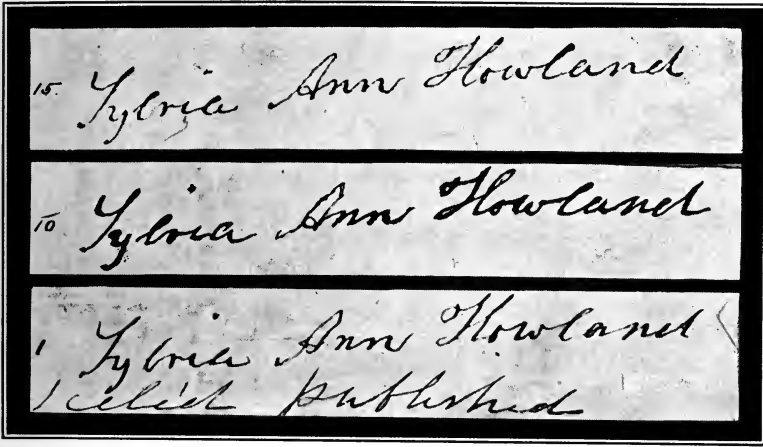 15. Sylvia Ann Howland
10 Sylvia Ann Howland
1 Sylvia Ann Howland
published